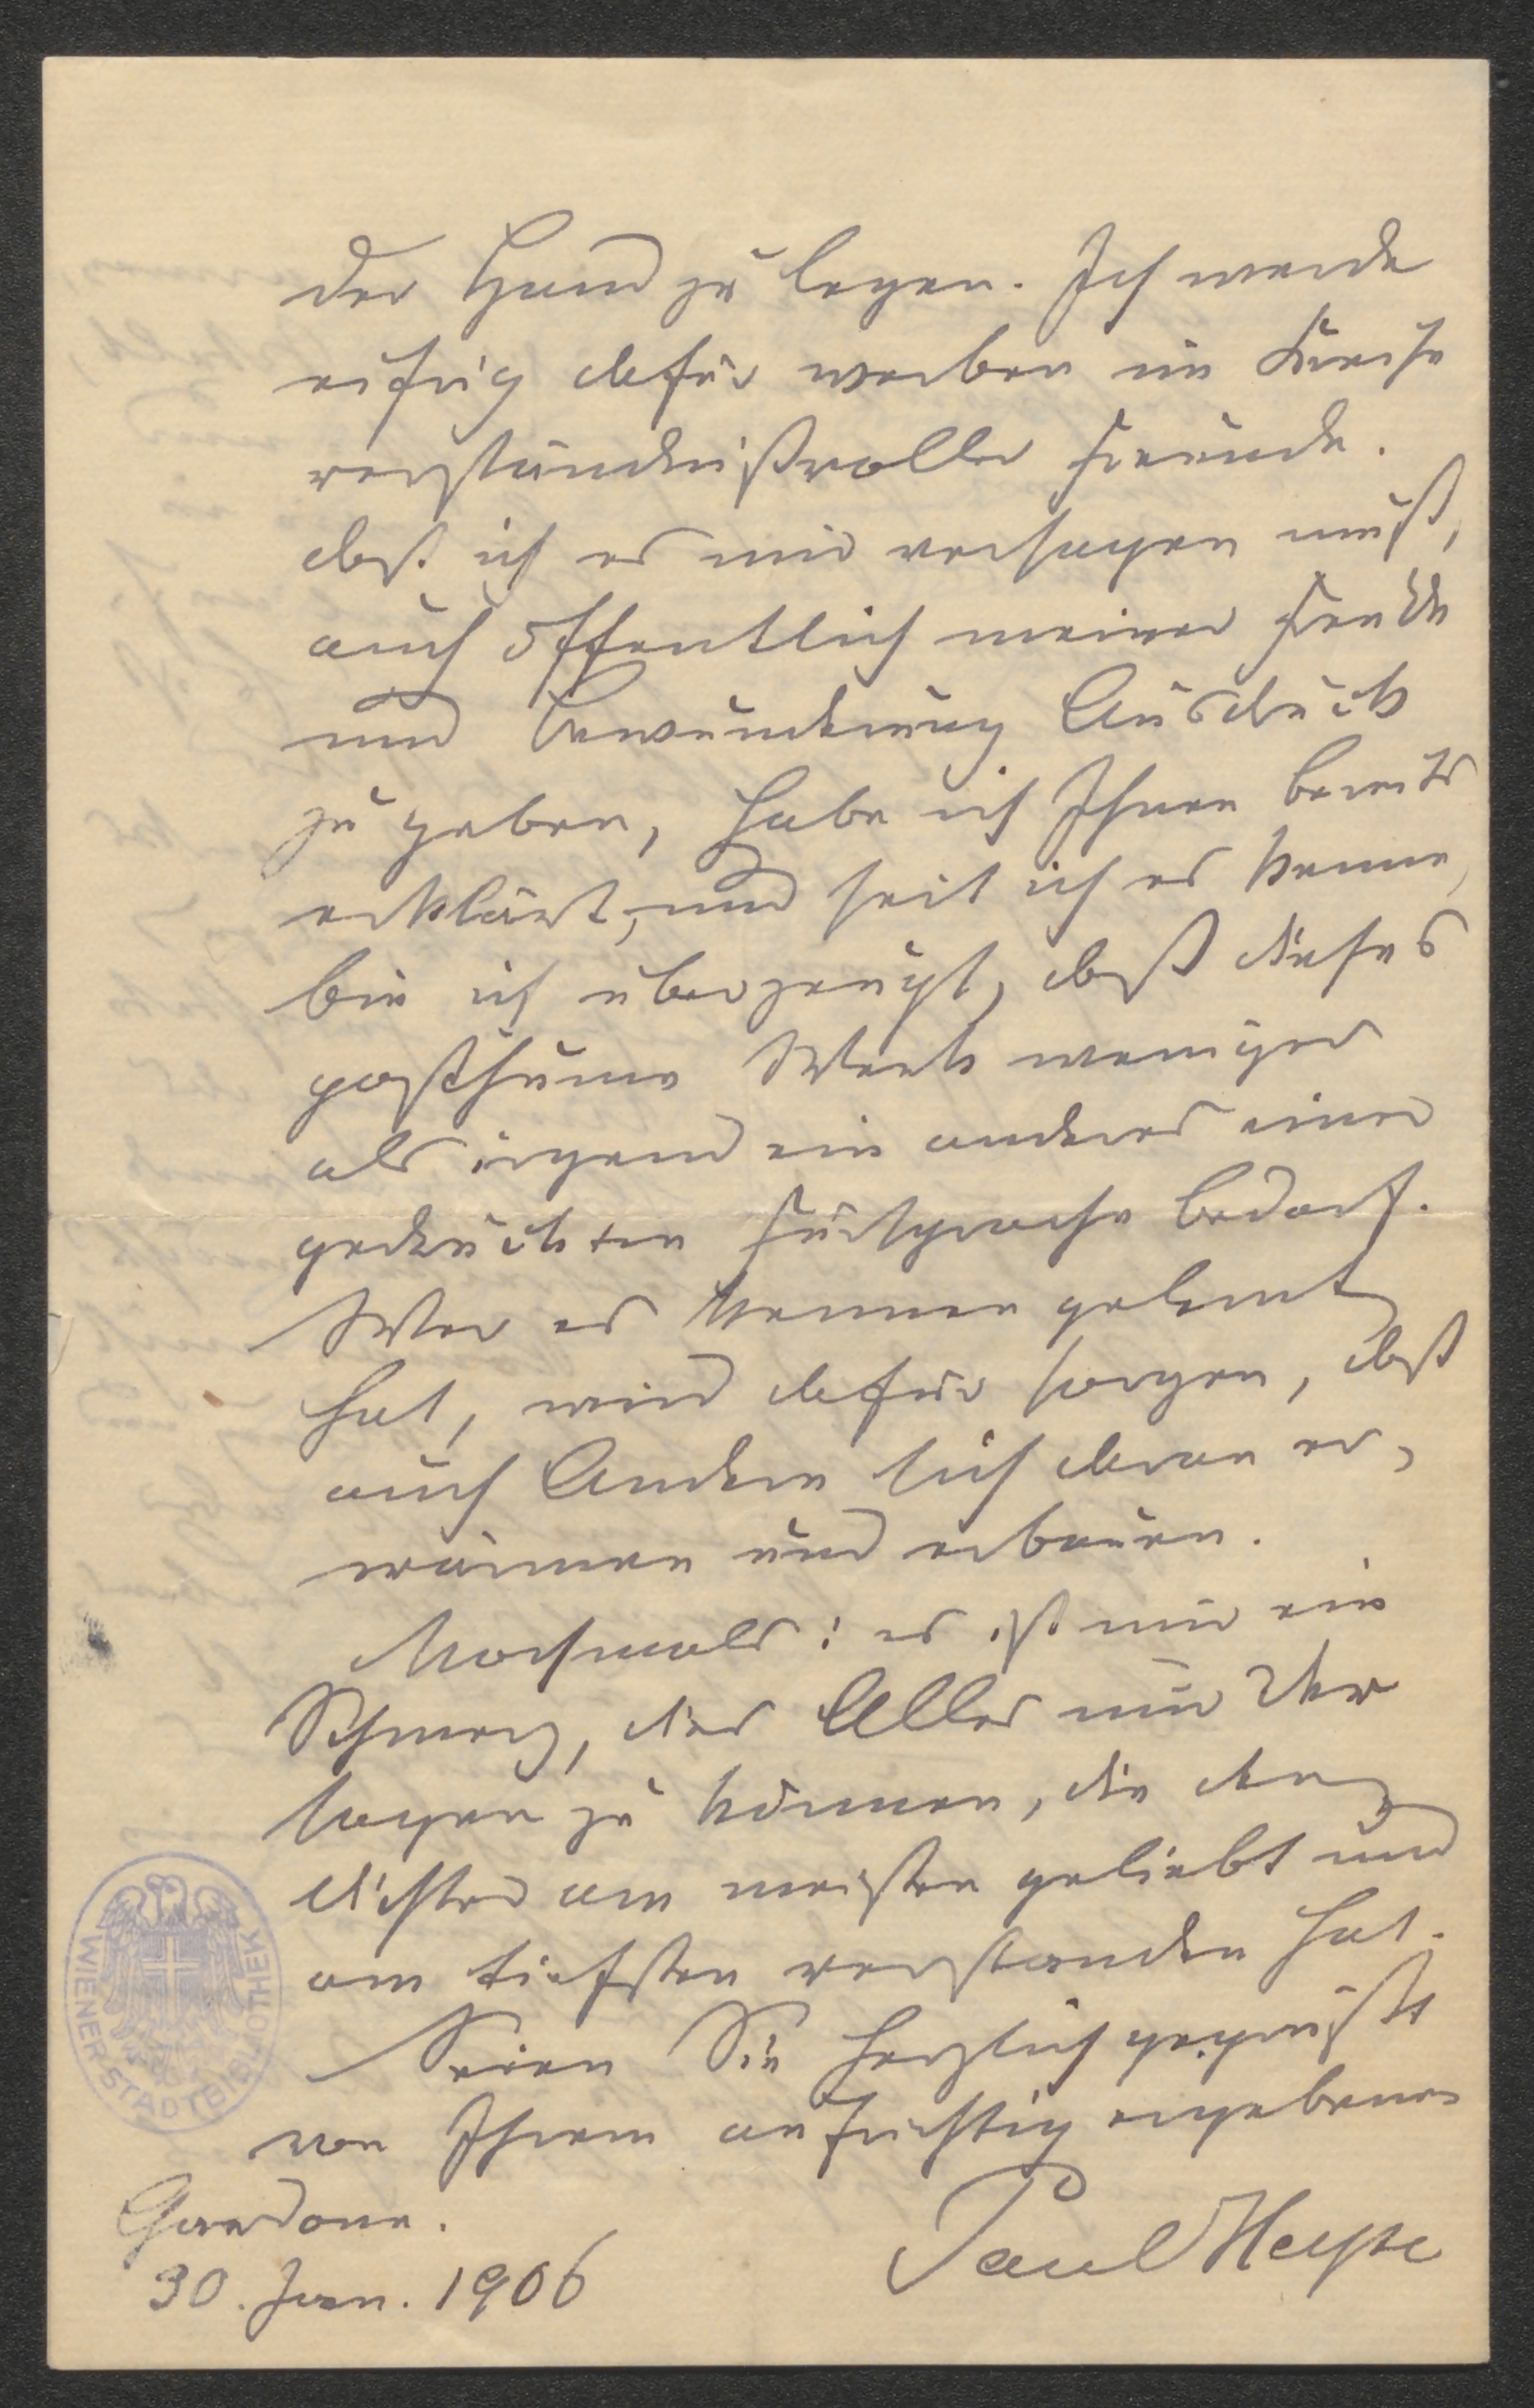 der Hand zu legen. Ich werde
eifrig dafür werben im Kreise
verständnißvoller Freunde.
daß ich es mir versagen muß,
auch öffentlich meiner Freude
und Bewunderung Ausdruck
zu geben, habe ich Ihnen bereits
erklärt, und seit ich es kenne,
bin ich überzeugt, daß dieses
posthume Werk weniger
als irgend ein anderes einer
gedruckten Fürsprache bedarf.
Wer es kennen gelernt
hat, wird dafür sorgen, daß
auch Andere sich daran er-
wärmen und erbauen.
Nochmals: es ist mir ein
Schmerz, dies Alles nur Der
sagen zu können, die den
Dichter am meisten geliebt und
am tiefsten verstanden hat.
Seien Sie herzlich gegrüßt
von Ihrem aufrichtig ergebenen
Paul Heyse
Gardone.
30. Jan. 1906
WIENER STADTBIBLIOTHEK